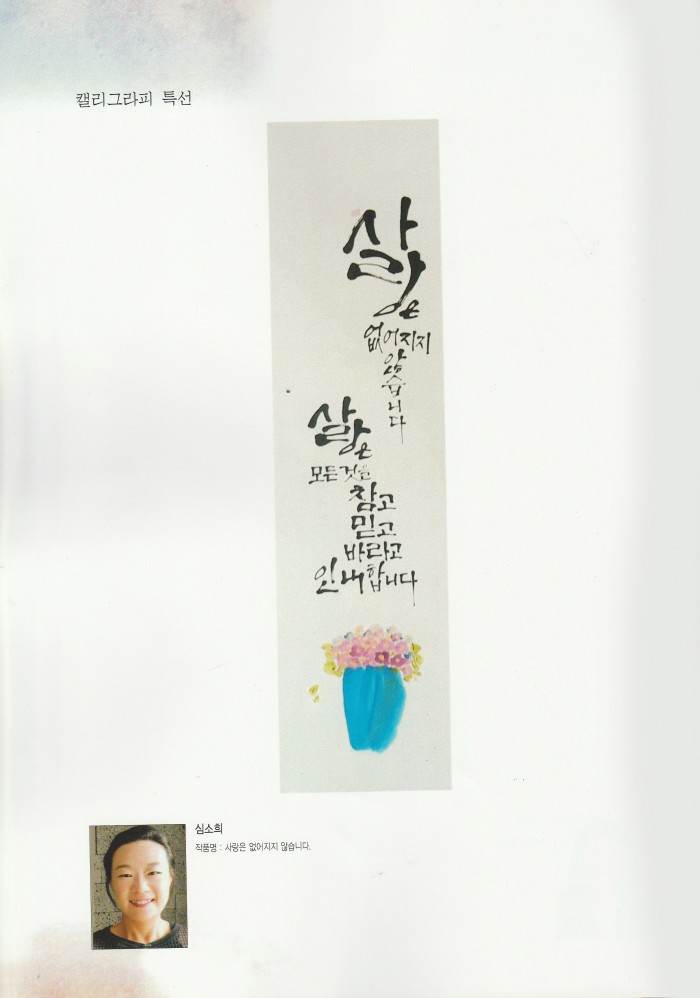 캘리그라피 특선
사랑은
없어지지
않습니다
사랑은
모든것을
참고
믿고
바라고
인내합니다
심소희
작품명 : 사랑은 없어지지 않습니다.